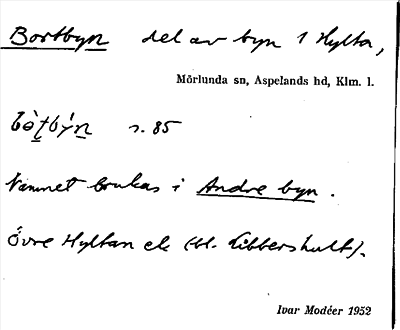 Bortbyn del av byn 1 Hylta,
Mörlunda sn, Aspelands hd, Klm. l.
s. 85
Namnet brukas i Andre byn.
Övre Hyltan el. (bl. Libbershult).
Ivar Modéer 1952